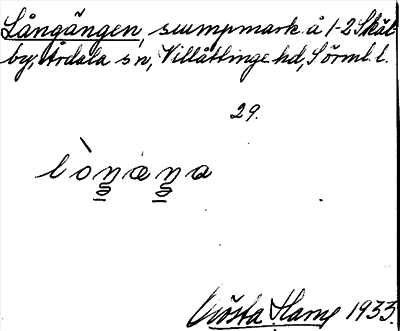 Långängen, sumpmark å 1-2 Skäl-
by, Årdala sn, Villåttinge hd, Sörml. l.
29.
lòŋæŋa
Gösta Harng 1933.